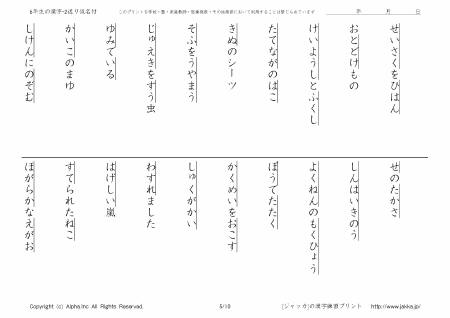 6年生の漢字-2送り仮名付
このプリントを学校・塾・家庭教師・医療機関・その他施設において利用することは禁じられています
年 月 日
せいさくをひはん
おとどけもの
けいようしとふくし
たてながのはこ
きぬのシーツ
そふをうやまう
じゅえきをすう虫
ゆみでいる
かいこのまゆ
しけんにのぞむ
せのたかさ
しんはいきのう
よくねんのもくひょう
ぼうでたたく
かくめいをおこす
しゅくがかい
わすれました
はげしい嵐
すてられたねこ
ほがらかなえがお
Copyright (c) Alpha.Inc All Rights Reserved.
5/10
[ジャッカ]の漢字練習プリント http://www.jakka.jp/